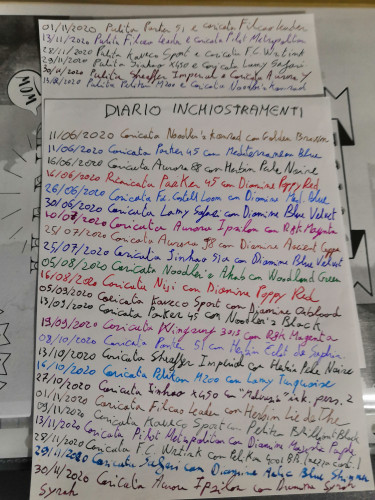 01/11/2020 Pulita Parker 51 e caricata Fitcus Leader
13/11/2020 Pulita Fitcus Leada e caricata Pilot Metropolitan
28/11/2020 Pulita Kaweco Sport e caricata F.C. Writink
29/11/2020 Pulita Jinhao X450 e caricata Lamy Safari
30/11/2020 Pulita Sheaffer Imperial e caricata Aurora
Pulita Pelikan M200 e caricata Noodler's Konrad
MOM
DIARIO INCHIOSTRAMENTI
11/06/2020 Caricata Noodler's Konrad con Golden Brown
11/06/2020 Caricata Parker 45 con Mediterranean Blue
16/06/2020 Caricata Aurora 88 con Herbin Perle Noire
16/06/2020 Ricaricata Parker 45 con Diamine Poppy Red
26/06/2020 Caricata F.C. Loom con Diamine Med. Blue
30/06/2020 Caricata Lamy Safari con Diamine Blue Velvet
/07/2020 Caricata Aurora Ipsilon con R&K Magenta
25/07/2020 Caricata Aurora 98 con Diamine Ancient Copper
25/07/2020 Caricata Jinhao 51A con Diamine Blue Velvet
05/08/2020 Caricata Noodler's Ahab con Woodland Green
16/08/2020 Caricata Niji con Diamine Poppy Red
05/09/2020 Caricata Kaweco Sport con Diamine Oxblood
13/09/2020 Caricata Parker 45 con Noodler's Black
19/09/2020 Caricata Wingsung 3013 con R&K Magenta
08/10/2020 Caricata Parker 51 con Herbin Eclat de Saphir
13/10/2020 Caricata Sheaffer Imperial con Herbin Perle Noire
16/10/2020 Caricata Pelikan M200 con Lamy Turquoise
27/10/2020 Caricata Jinhao X450 con ink. pers. 2
01/11/2020 Caricata Fitcus Leader con Herbin Lie de Thé
09/11/2020 Caricata Kaweco Sport con Pelikan Brilliant Black
13/11/2020 Caricata Pilot Metropolitan con Diamine Majestic Purple
28/11/2020 Caricata F.C. Writink con Pelikan 4001 B.
29/11/2020 Caricata Safari con Diamine Blue
30/11/2020 Caricata Aurora Ipsilon con Diamine Syrah
Syrah